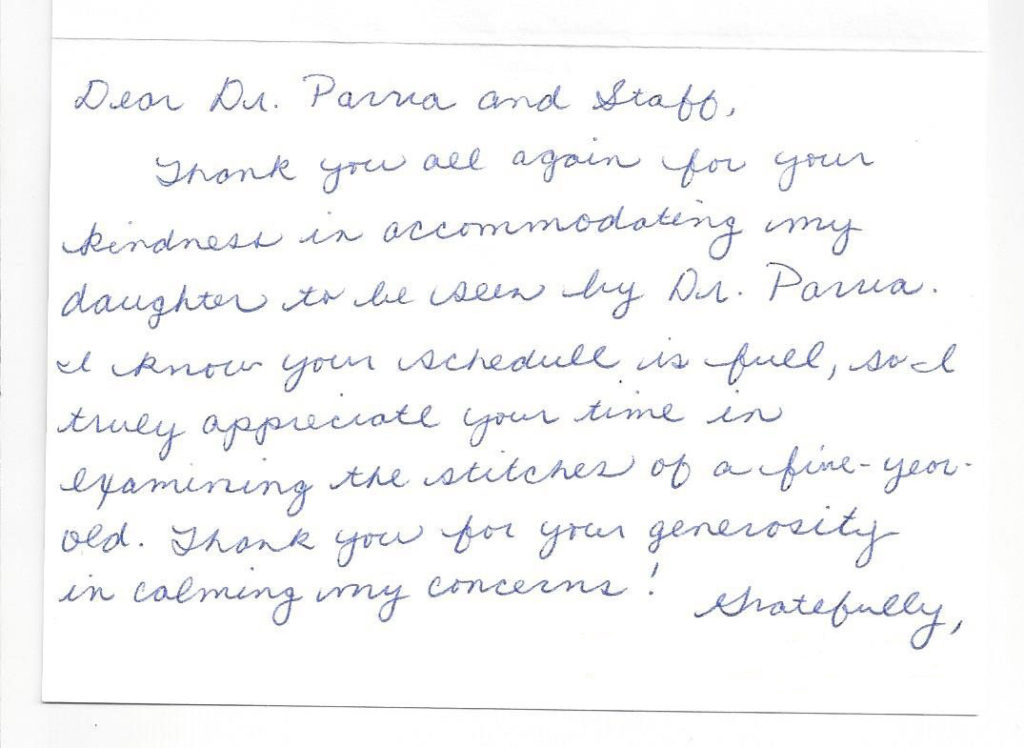 Dear Dr. Parva and Staff,
Thank you all again for your
kindness in accommodating my
daughter to be seen by Dr. Parva.
I know your schedule is full, so I
truly appreciate your time in
examining the stitches of a five-year-
old. Thank you for your generosity
in calming my concerns!
Gratefully,